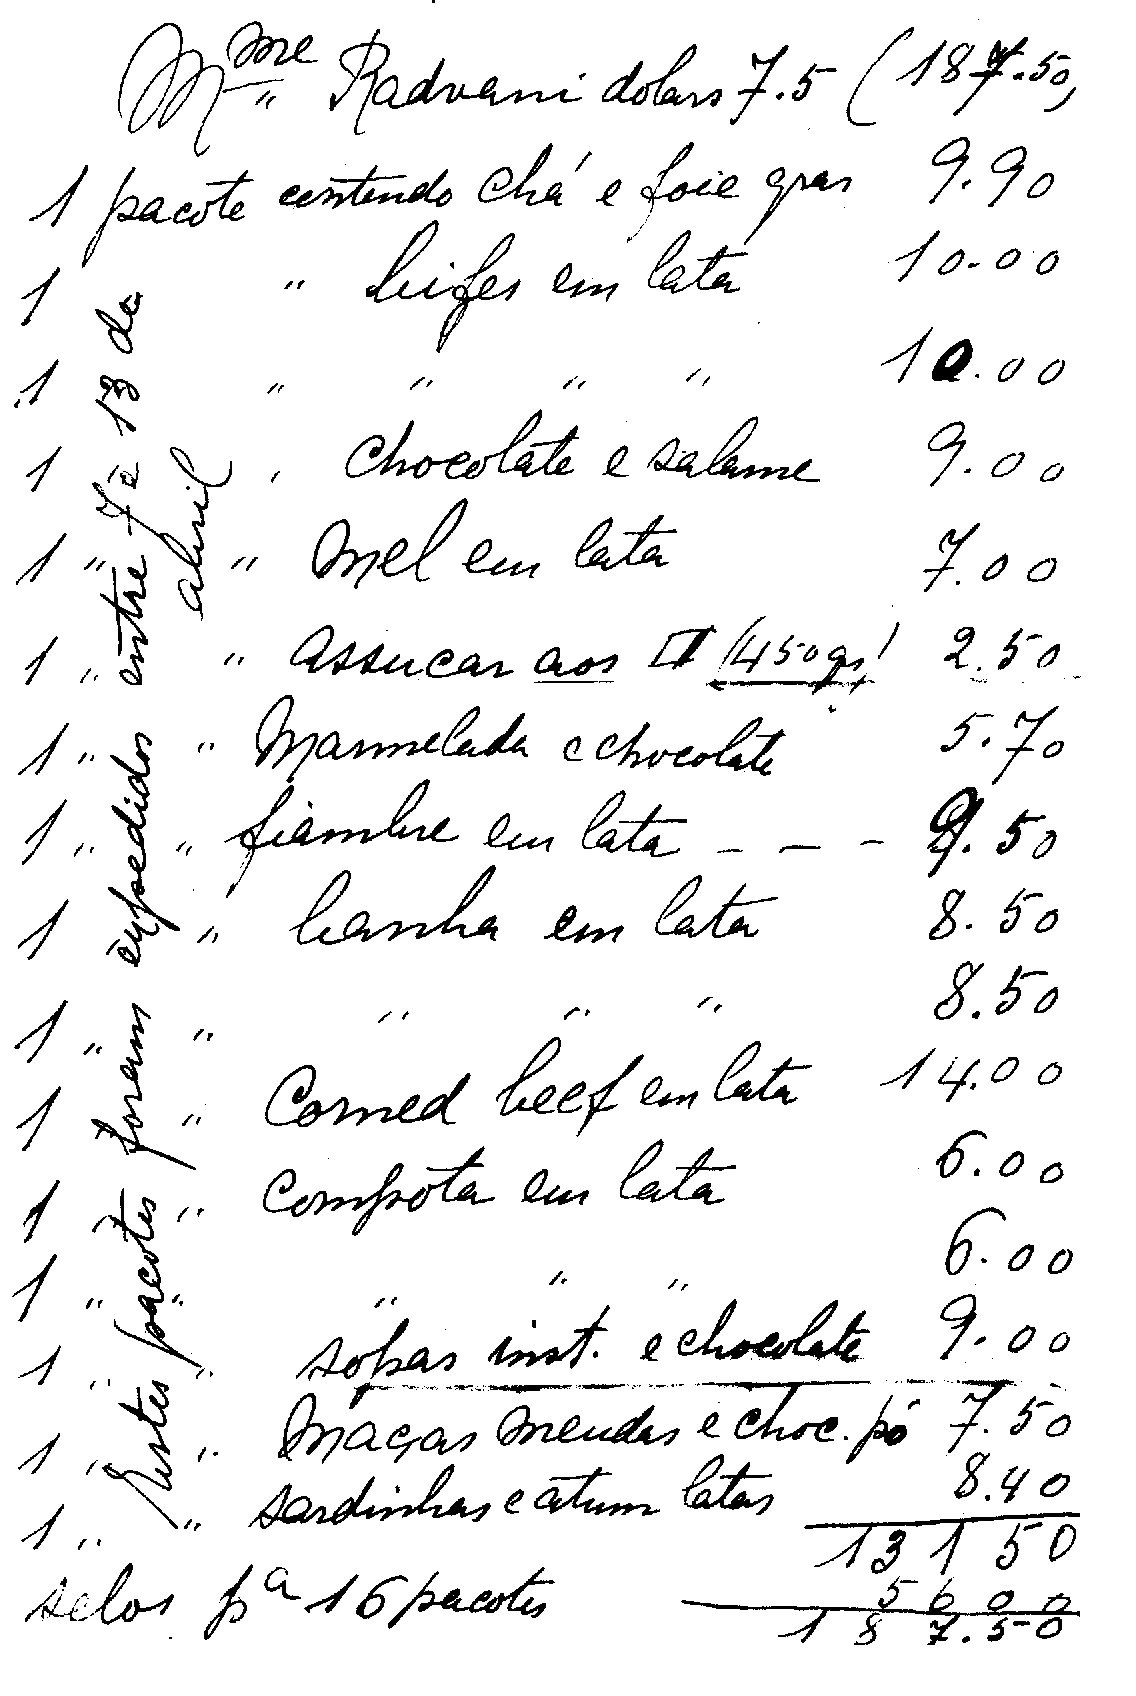 Mme
" Radvani dolars 7.5 (187.50,
1 pacote contendo chá e foie gras 9.90
1 " bifes em lata 10.00
1 " " " " 10.00
1 " chocolate e salame 9.00
1 " " Mel em lata 7.00
1 " " assucar aos (450 gs) 2.50
1 " " Marmelada e chocolate 5.70
1 " " fiambre em lata - - - 9.50
1 " banha em lata 8.50
1 " " " " " 8.50
1 " Corned beef em lata 14.00
1 " compota em lata 6.00
1 " " " " " 6.00
1 " " sopas inst. e chocolate 9.00
1 " " Maçãs e choc. pó 7.50
1 " " sardinhas e atum latas 8.40
131 50
selos pa 16 pacotes 56 00
187.50
Estes pacotes foram expedidos entre 7 e 13 de
abril